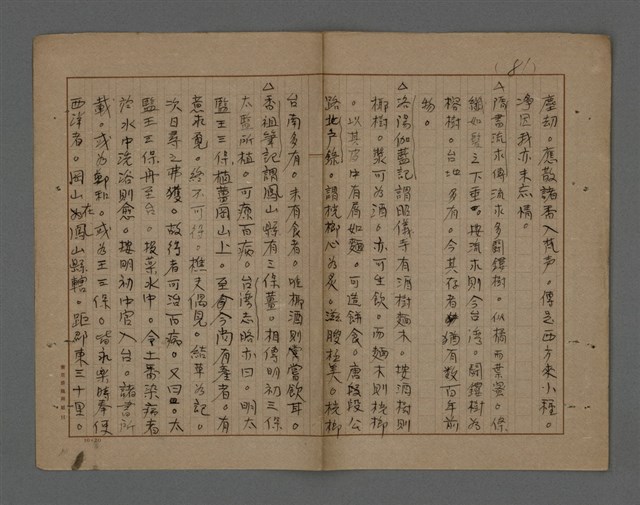 (81)
塵劫。應散諸香入梵聲。傳是西方來小種。
淨因我亦未忘情。
△隋書流求傳流求多鬪鏤樹。似橘而葉蜜。條
纖如髮之下垂。按流求則今台湾。鬪鏤樹為
榕樹。台地多有。今其存者猶有數百年前
物。
△洛陽伽藍記謂昭儀寺有酒樹麵木。按酒樹則
椰樹。漿可為酒。亦可生飲。而麵木則桄榔
。以其存中有屑如麵。可造餅食。唐段公
路北戶錄。謂桄榔心為炙。滋腴極美。桄榔
台南多有。未有食者。唯椰酒則嘗嘗飲耳。
△香祖筆記謂鳳山縣有三保薑。相傳明初三保
太監所植。可療百病。台湾志略亦曰。明太
監王三保植薑岡山上。至今尚有產者。有
意求覓。終不可得。樵夫偶見。結草為記。
次日尋之弗獲。故得者可治百病。又曰。太
監王三保舟至台。投藥水中。令土番染病者
於水中洗浴則愈。按明初中官入台。諸書所
載。或為鄭和。或為王三保。皆永樂時奉使
西洋者。岡山在鳳山縣轄。距郡東三十里。